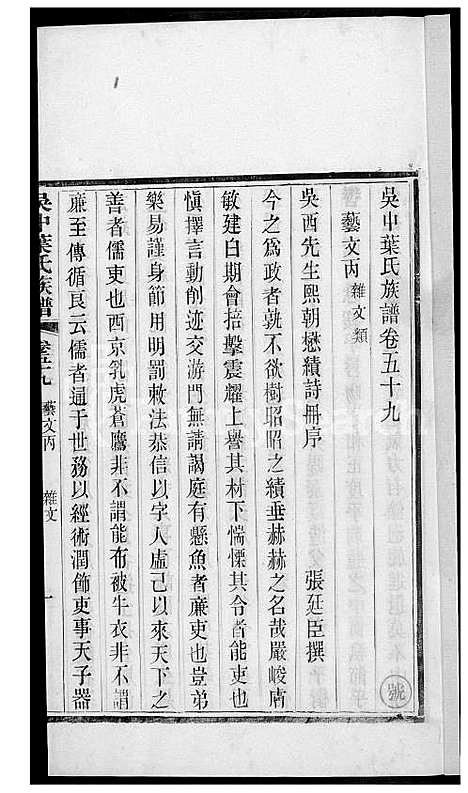 吳中葉氏族譜卷五十九
藝文丙 雜文類
吳西先生熙朝懋績詩冊序 張延臣撰
今之爲政者孰不欲樹昭昭之績垂赫赫之名哉嚴峻膚
敏建白期會掊擊震耀上譽其材下惴慄其令者能吏也
愼擇言動削迹交游門無請謁庭有懸魚者廉吏也豈弟
樂易謹身節用明罰敕法恭信以字人虛己以來天下之
善者儒吏也西京乳虎蒼鷹非不謂能布被牛衣非不謂
廉至傳循良云儒者通于世務以經術潤飾吏事天子器
吳中葉氏族譜 卷五十九 藝文丙 雜文 一